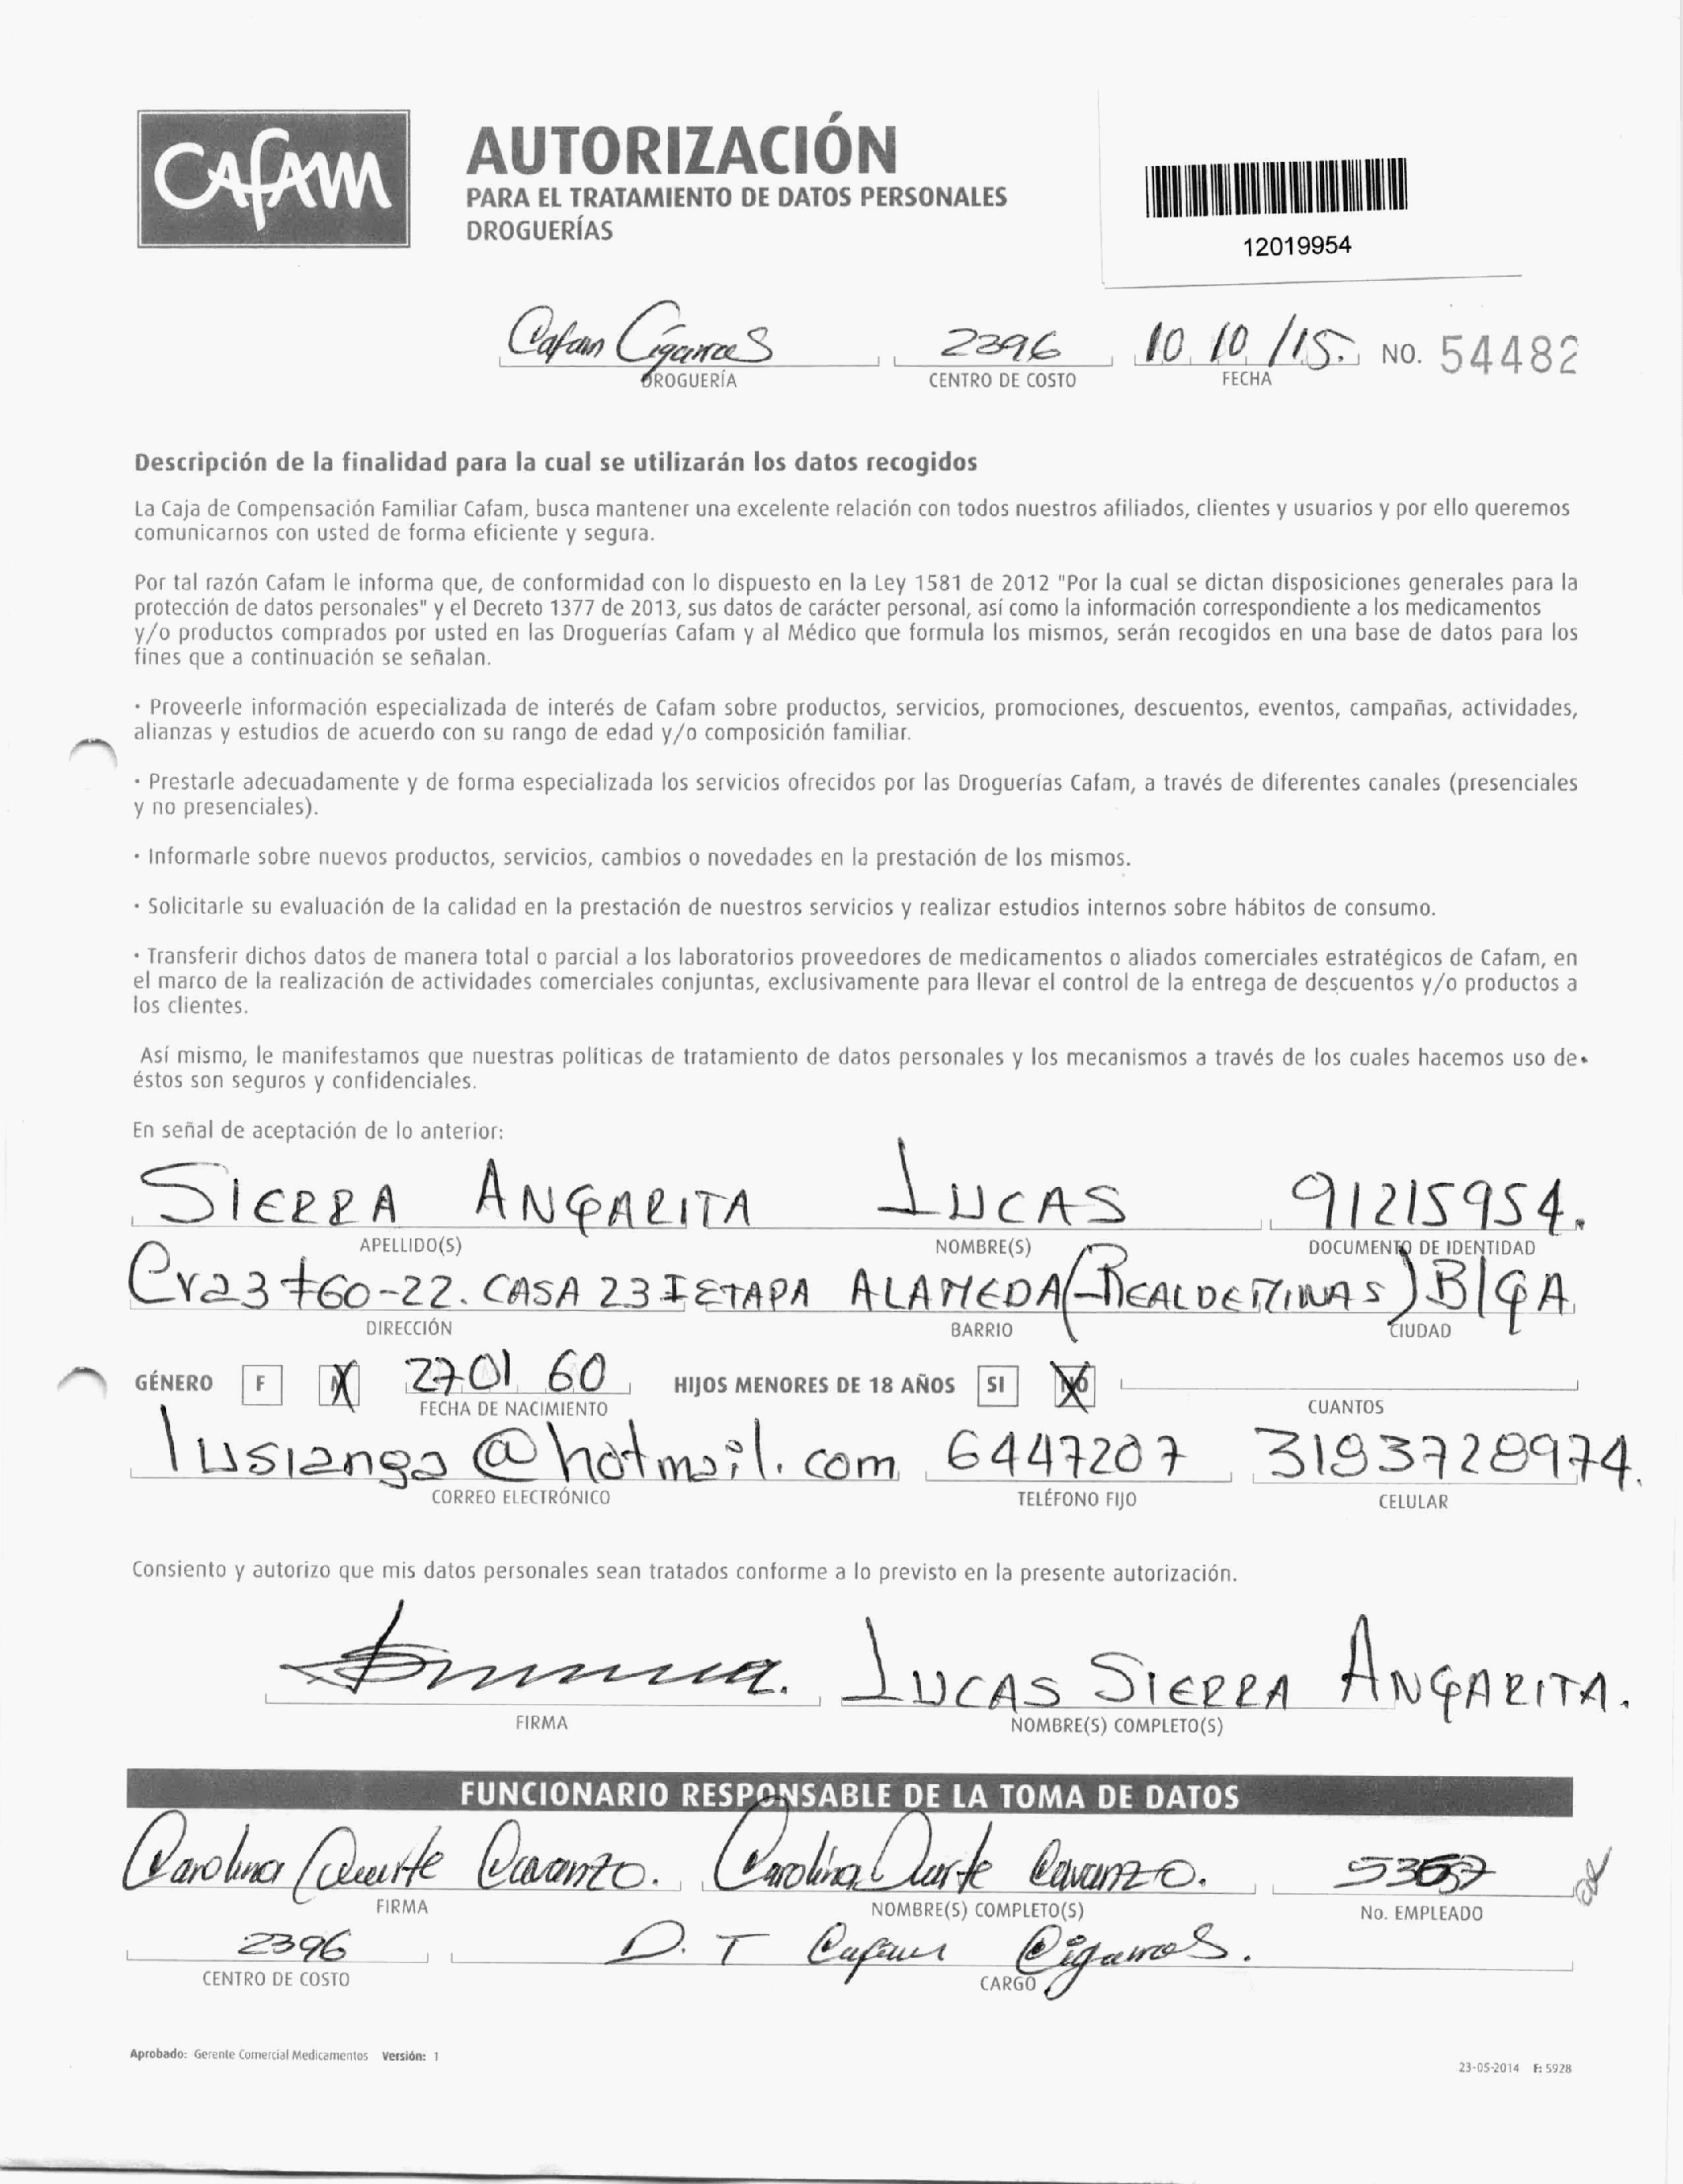 CAFAM
AUTORIZACIÓN
PARA EL TRATAMIENTO DE DATOS PERSONALES
DROGUERÍAS
12019954
Cafam 2396 10 10 /15. NO. 54482
DROGUERÍA CENTRO DE COSTO FECHA
Descripción de la finalidad para la cual se utilizarán los datos recogidos
La Caja de Compensación Familiar Cafam, busca mantener una excelente relación con todos nuestros afiliados, clientes y usuarios y por ello queremos
comunicarnos con usted de forma eficiente y segura.
Por tal razón Cafam le informa que, de conformidad con lo dispuesto en la Ley 1581 de 2012 "Por la cual se dictan disposiciones generales para la
protección de datos personales" y el Decreto 1377 de 2013, sus datos de carácter personal, así como la información correspondiente a los medicamentos
y/o productos comprados por usted en las Droguerías Cafam y al Médico que formula los mismos, serán recogidos en una base de datos para los
fines que a continuación se señalan.
· Proveerle información especializada de interés de Cafam sobre productos, servicios, promociones, descuentos, eventos, campañas, actividades,
alianzas y estudios de acuerdo con su rango de edad y/o composición familiar.
· Prestarle adecuadamente y de forma especializada los servicios ofrecidos por las Droguerías Cafam, a través de diferentes canales (presenciales
y no presenciales).
· Informarle sobre nuevos productos, servicios, cambios o novedades en la prestación de los mismos.
· Solicitarle su evaluación de la calidad en la prestación de nuestros servicios y realizar estudios internos sobre hábitos de consumo.
· Transferir dichos datos de manera total o parcial a los laboratorios proveedores de medicamentos o aliados comerciales estratégicos de Cafam, en
el marco de la realización de actividades comerciales conjuntas, exclusivamente para llevar el control de la entrega de descuentos y/o productos a
los clientes.
Así mismo, le manifestamos que nuestras políticas de tratamiento de datos personales y los mecanismos a través de los cuales hacemos uso de
éstos son seguros y confidenciales.
En señal de aceptación de lo anterior:
SIERRA ANGARITA LUCAS 91215954.
APELLIDO(S) NOMBRE(S) DOCUMENTO DE IDENTIDAD
Cra 23 #60-22. CASA 23 I ETAPA ALAMEDA (REAL DE MINAS) B/GA
DIRECCIÓN BARRIO CIUDAD
GÉNERO F M 27 01 60 HIJOS MENORES DE 18 AÑOS SI NO
FECHA DE NACIMIENTO CUANTOS
lusianga@hotmail.com 6447207 3193728974.
CORREO ELECTRÓNICO TELÉFONO FIJO CELULAR
Consiento y autorizo que mis datos personales sean tratados conforme a lo previsto en la presente autorización.
LUCAS SIERRA ANGARITA.
FIRMA NOMBRE(S) COMPLETO(S)
FUNCIONARIO RESPONSABLE DE LA TOMA DE DATOS
Carolina Duarte Cavanzo. Carolina Duarte Cavanzo.
FIRMA NOMBRE(S) COMPLETO(S) No. EMPLEADO
2396 D. T Cafam
CENTRO DE COSTO CARGO
Aprobado: Gerente Comercial Medicamentos Versión: 1
23-05-2014 F: 5928